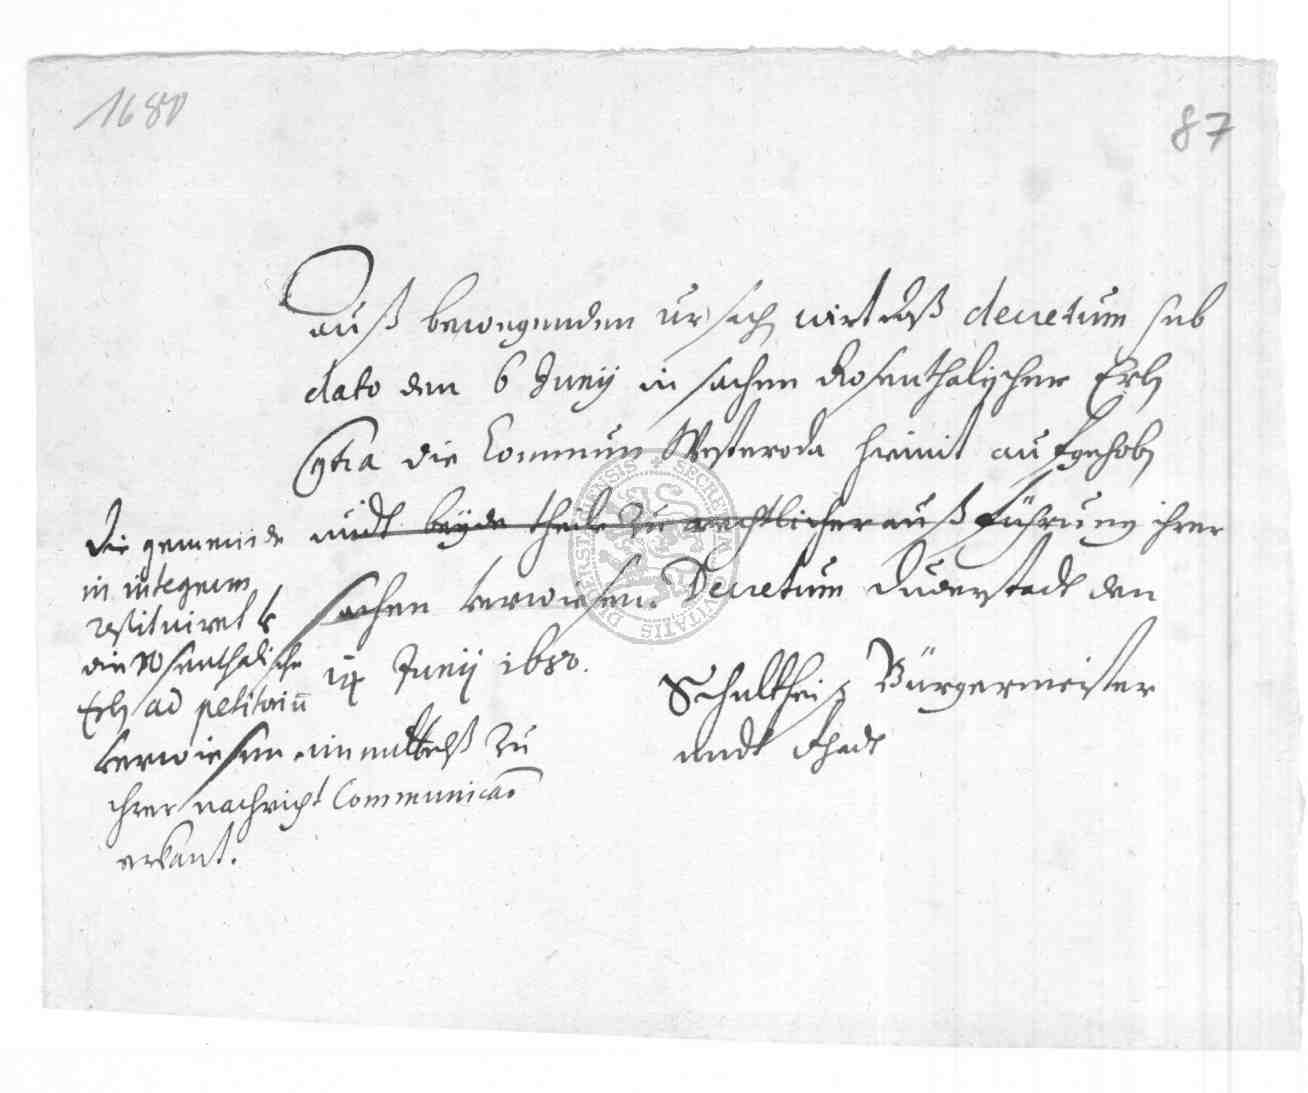 1680
87
auß bewegenden ursach wirt daß decretum sub
dato den 6 Junij in sachen Rosenthalischer Erb
die Commun Westeroda hiemit aufgehob
undt beyde theile zu rechtlicher außführung ihrer
sachen verwiesen. Decretum Duderstadt den
14 Junij 1680.
Schultheiß Bürgermeister
undt Rhadt
die gemeinde
in integrum
restituiret
die Rosenthalische
Erb ad petitoriū
verwiesen einmittelst zu
ihrer nachricht Communicaõ
erkant.
SECRETUM CIVITATIS DUDERSTADENSIS